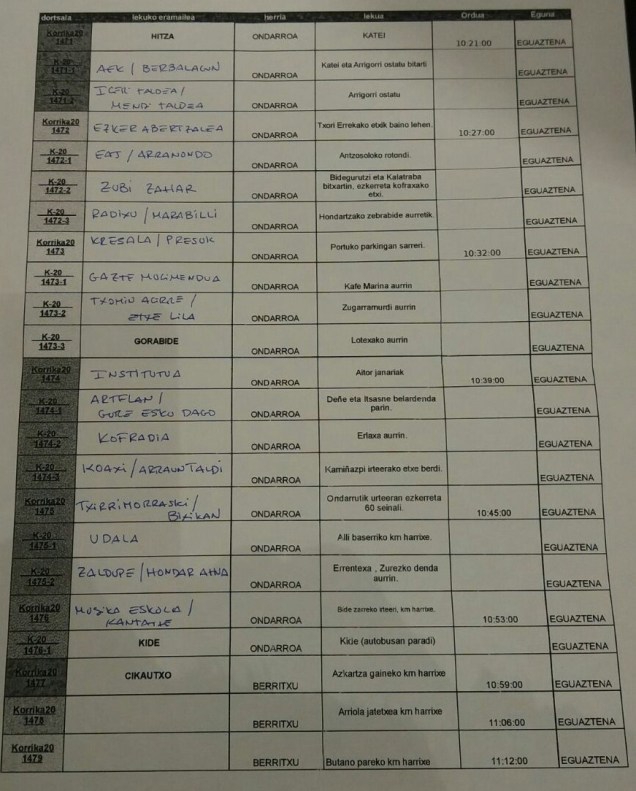 dortsala lekuko eramailea herria lekua Ordua Eguna
Korrika20 1471 HITZA ONDARROA KATEI 10:21:00 EGUAZTENA
K-20 1471-1 AEK / BERBALAGUN ONDARROA Katei eta Arrigorri ostatu bitarti EGUAZTENA
K-20 1471-2 IGERI TALDEA / MENDI TALDEA ONDARROA Arrigorri ostatu EGUAZTENA
Korrika20 1472 EZKER ABERTZALEA ONDARROA Txori Errekako etxik baino lehen. 10:27:00 EGUAZTENA
K-20 1472-1 EAJ / ARRANONDO ONDARROA Antzosoloko rotondi. EGUAZTENA
K-20 1472-2 ZUBI ZAHAR ONDARROA Bidegurutzi eta Kalatraba bitxartin, ezkerreta kofraxako etxi. EGUAZTENA
K-20 1472-3 RADIXU / MARABILLI ONDARROA Hondartzako zebrabide aurretik. EGUAZTENA
Korrika20 1473 KRESALA / PRESOIK ONDARROA Portuko parkingan sarreri. 10:32:00 EGUAZTENA
K-20 1473-1 GAZTE MUGIMENDUA ONDARROA Kafe Marina aurrin EGUAZTENA
K-20 1473-2 TXOMIN AGIRRE / ETXE LILA ONDARROA Zugarramurdi aurrin EGUAZTENA
K-20 1473-3 GORABIDE ONDARROA Lotexako aurrin EGUAZTENA
Korrika20 1474 INSTITUTUA ONDARROA Aitor janariak 10:39:00 EGUAZTENA
K-20 1474-1 ARTELAN / GURE ESKO DAGO ONDARROA Deñe eta Itsasne belardenda parin. EGUAZTENA
K-20 1474-2 KOFRADIA ONDARROA Erlaxa aurrin. EGUAZTENA
K-20 1474-3 KOAXI / ARRAUNTALDI ONDARROA Kamiñazpi irteerako etxe berdi. EGUAZTENA
Korrika20 1475 TXIRRIMORRASKI / BIXIKAN ONDARROA Ondarrutik urteeran ezkerreta 60 seinali. 10:45:00 EGUAZTENA
K-20 1475-1 UDALA ONDARROA Alli baserriko km harrixe. EGUAZTENA
K-20 1475-2 ZALDUPE / HONDAR ONDARROA Errentexa , Zurezko denda aurrin. EGUAZTENA
Korrika20 1476 MUSIKA ESKOLA / ONDARROA Bide zarreko steen, km harrixe. 10:53:00 EGUAZTENA
K-20 1476-1 KIDE ONDARROA Kide (autobusan paradi) EGUAZTENA
Korrika20 1477 CIKAUTXO BERRITXU Azkartza gaineko km harrixe 10:59:00 EGUAZTENA
Korrika20 1478 BERRITXU Arriola jatetxea km harrixe 11:06:00 EGUAZTENA
Korrika20 1479 BERRITXU Butano pareko km harrixe 11:12:00 EGUAZTENA